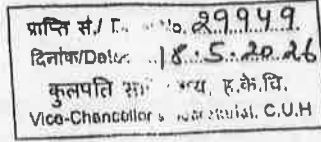 प्राप्ति सं./ No. 29949
दिनांक/Date 18.5.2026
कुलपति ह.के.वि.
Vice-Chancellor's C.U.H